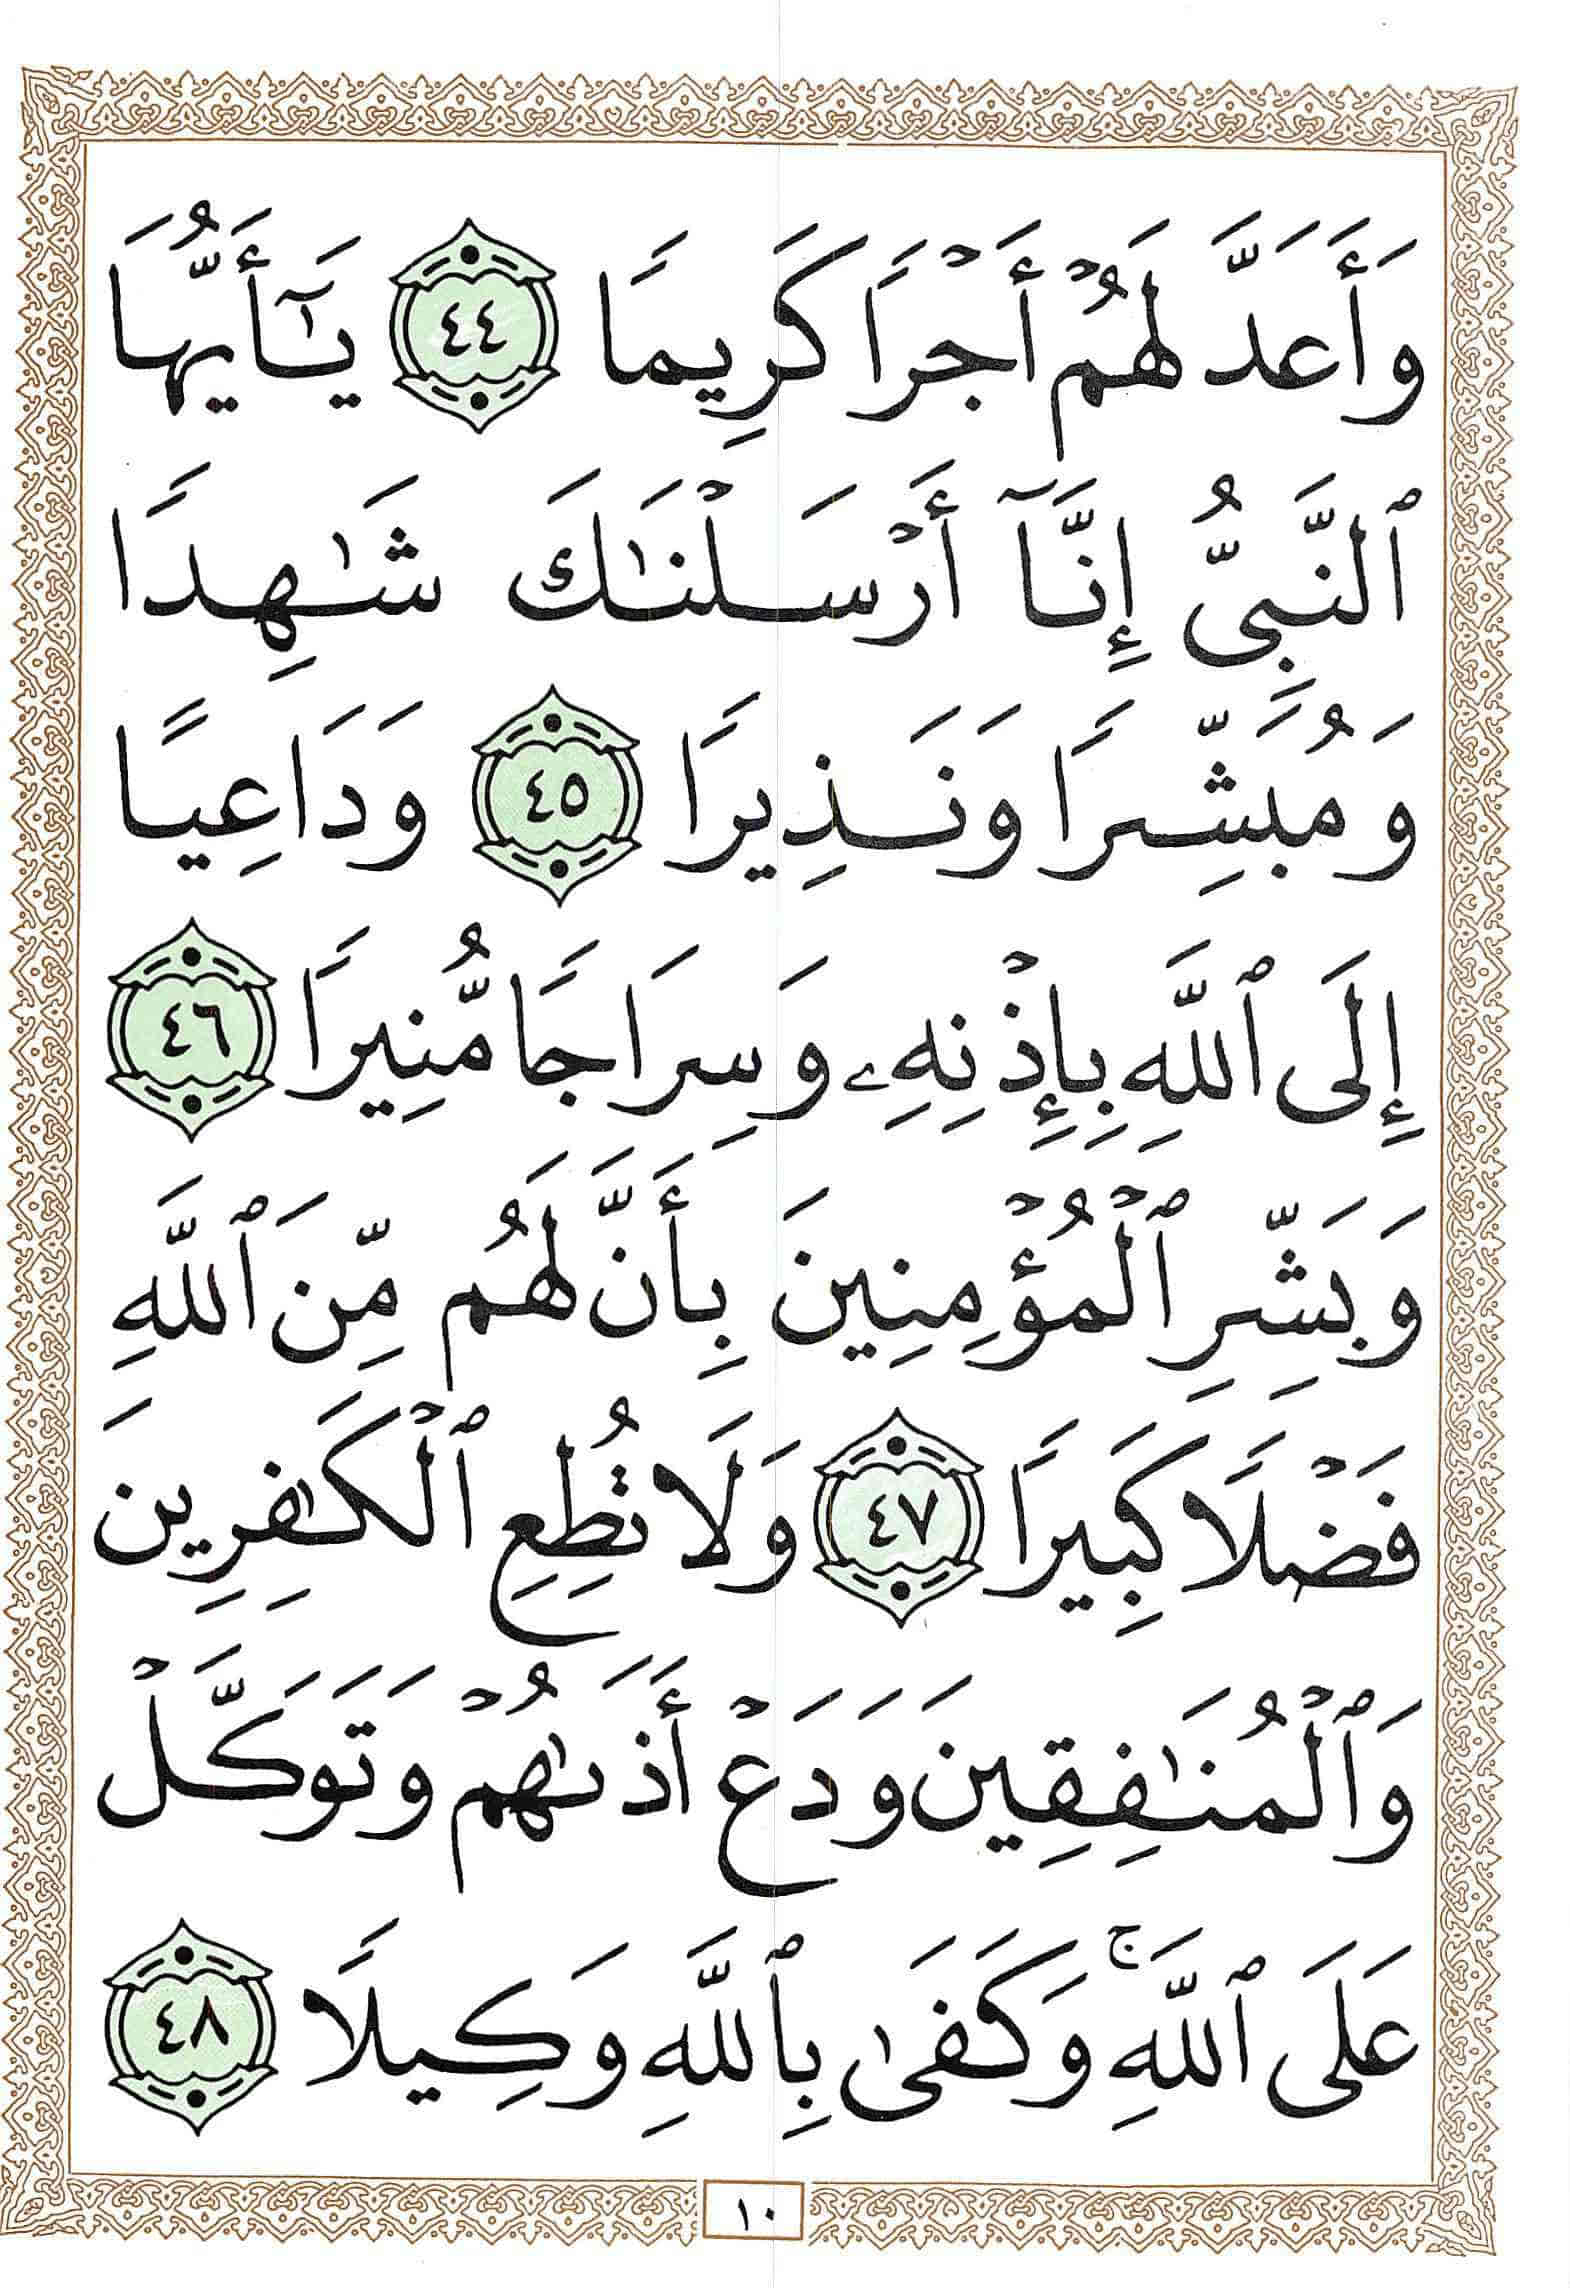 وَأَعَدَّ لَهُمْ أَجْرًا كَرِيمًا ٤٤ يَـٰٓأَيُّهَا
ٱلنَّبِىُّ إِنَّآ أَرْسَلْنَـٰكَ شَـٰهِدًا
وَمُبَشِّرًا وَنَذِيرًا ٤٥ وَدَاعِيًا
إِلَى ٱللَّهِ بِإِذْنِهِۦ وَسِرَاجًا مُّنِيرًا ٤٦
وَبَشِّرِ ٱلْمُؤْمِنِينَ بِأَنَّ لَهُم مِّنَ ٱللَّهِ
فَضْلًا كَبِيرًا ٤٧ وَلَا تُطِعِ ٱلْكَـٰفِرِينَ
وَٱلْمُنَـٰفِقِينَ وَدَعْ أَذَىٰهُمْ وَتَوَكَّلْ
عَلَى ٱللَّهِ ۚ وَكَفَىٰ بِٱللَّهِ وَكِيلًا ٤٨
١٠